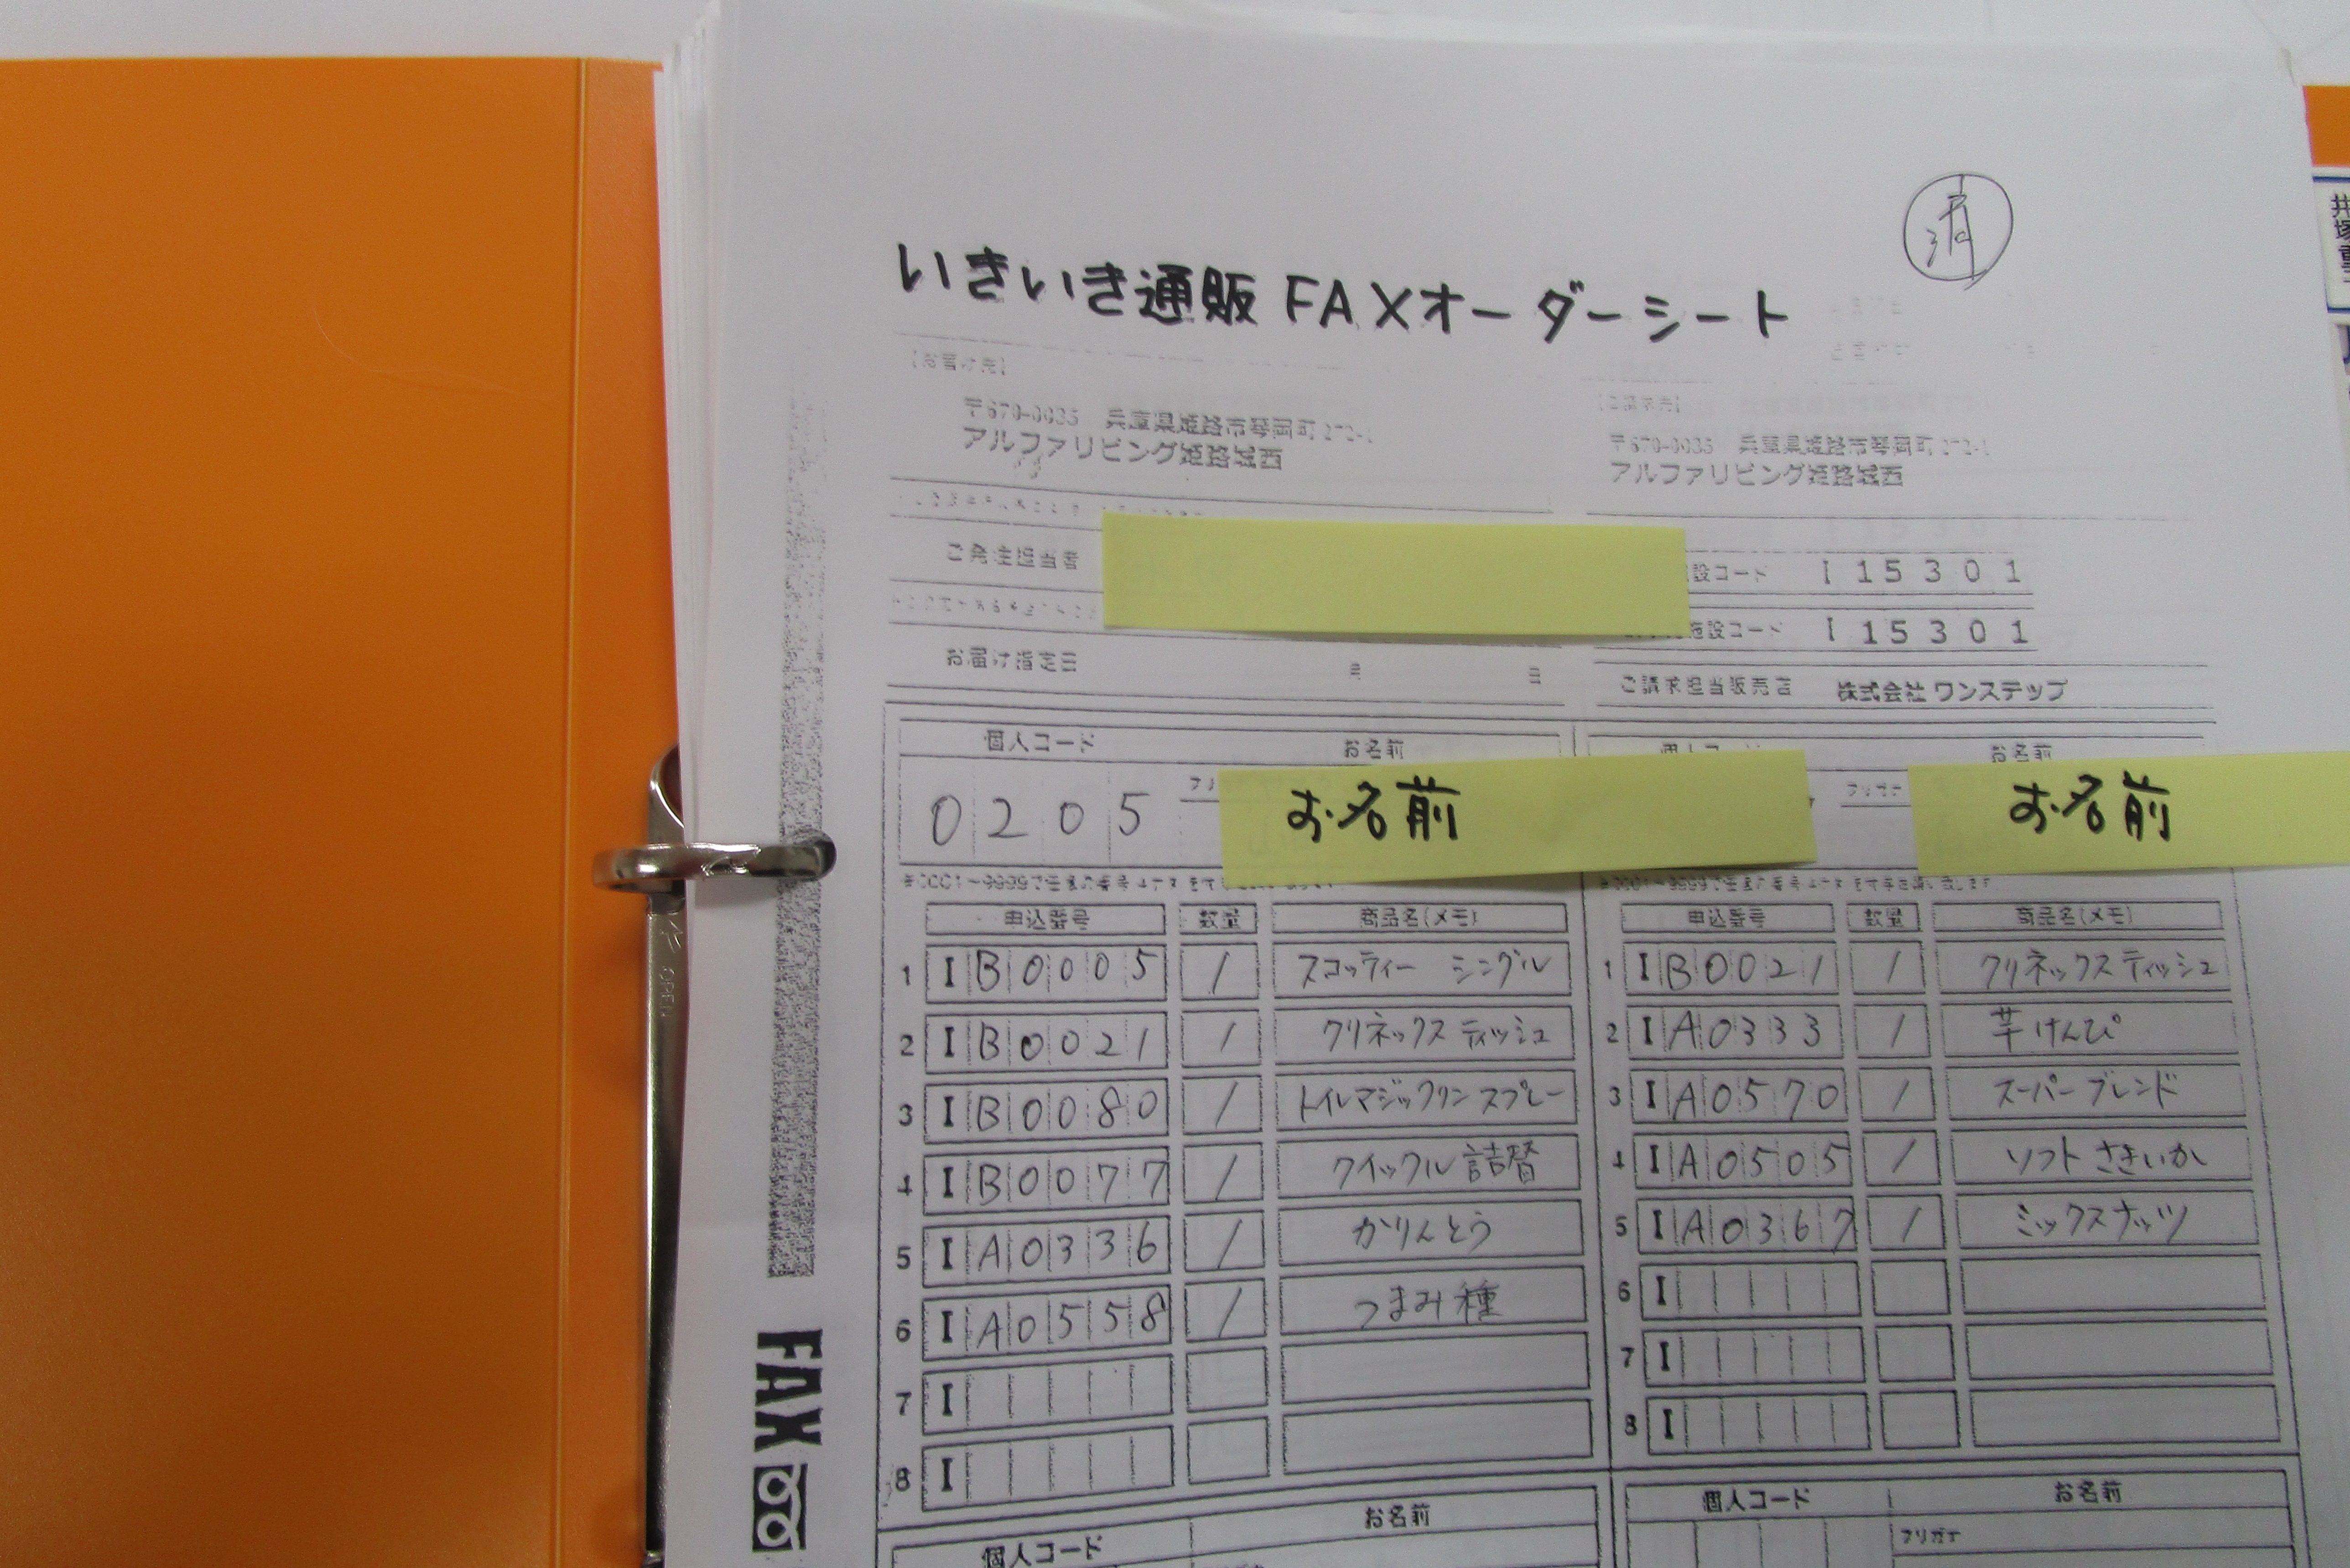 済
いきいき通販 FAXオーダーシート
【お届け先】
〒670-0035 兵庫県姫路市琴岡町272-1
アルファリビング姫路城西
〒670-0035 兵庫県姫路市琴岡町272-1
アルファリビング姫路城西
ご発注担当者
設コード I 15301
施設コード I 15301
お届け指定日 月 日
ご請求担当販売店 株式会社 ワンステップ
個人コード お名前
0205 フリ お名前
申込番号 数量 商品名(メモ)
1 I B0005 1 スコッティー シングル
2 I B0021 1 クリネックス ティッシュ
3 I B0080 1 トイレマジックリン スプレー
4 I B0077 1 クイックル 詰替
5 I A0336 1 かりんとう
6 I A0558 1 つまみ種
7 I
8 I
個人コード お名前
お名前
フリガナ
申込番号 数量 商品名(メモ)
1 I B0021 1 クリネックス ティッシュ
2 I A0333 1 芋けんぴ
3 I A0570 1 スーパーブレンド
4 I A0505 1 ソフトさきいか
5 I A0367 1 ミックスナッツ
6 I
7 I
8 I
個人コード お名前
個人コード お名前
フリガナ
FAX
OPEN